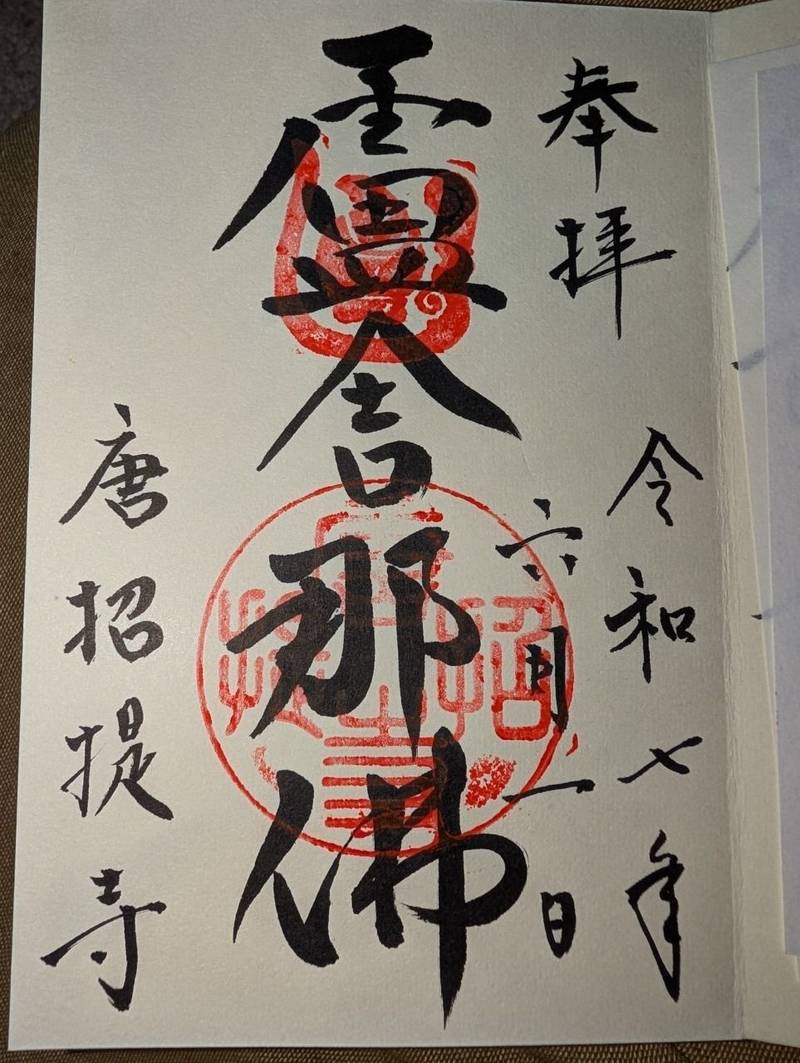 奉拝
令和七年
六月一日
盧舎那佛
唐招提寺
唐招提寺